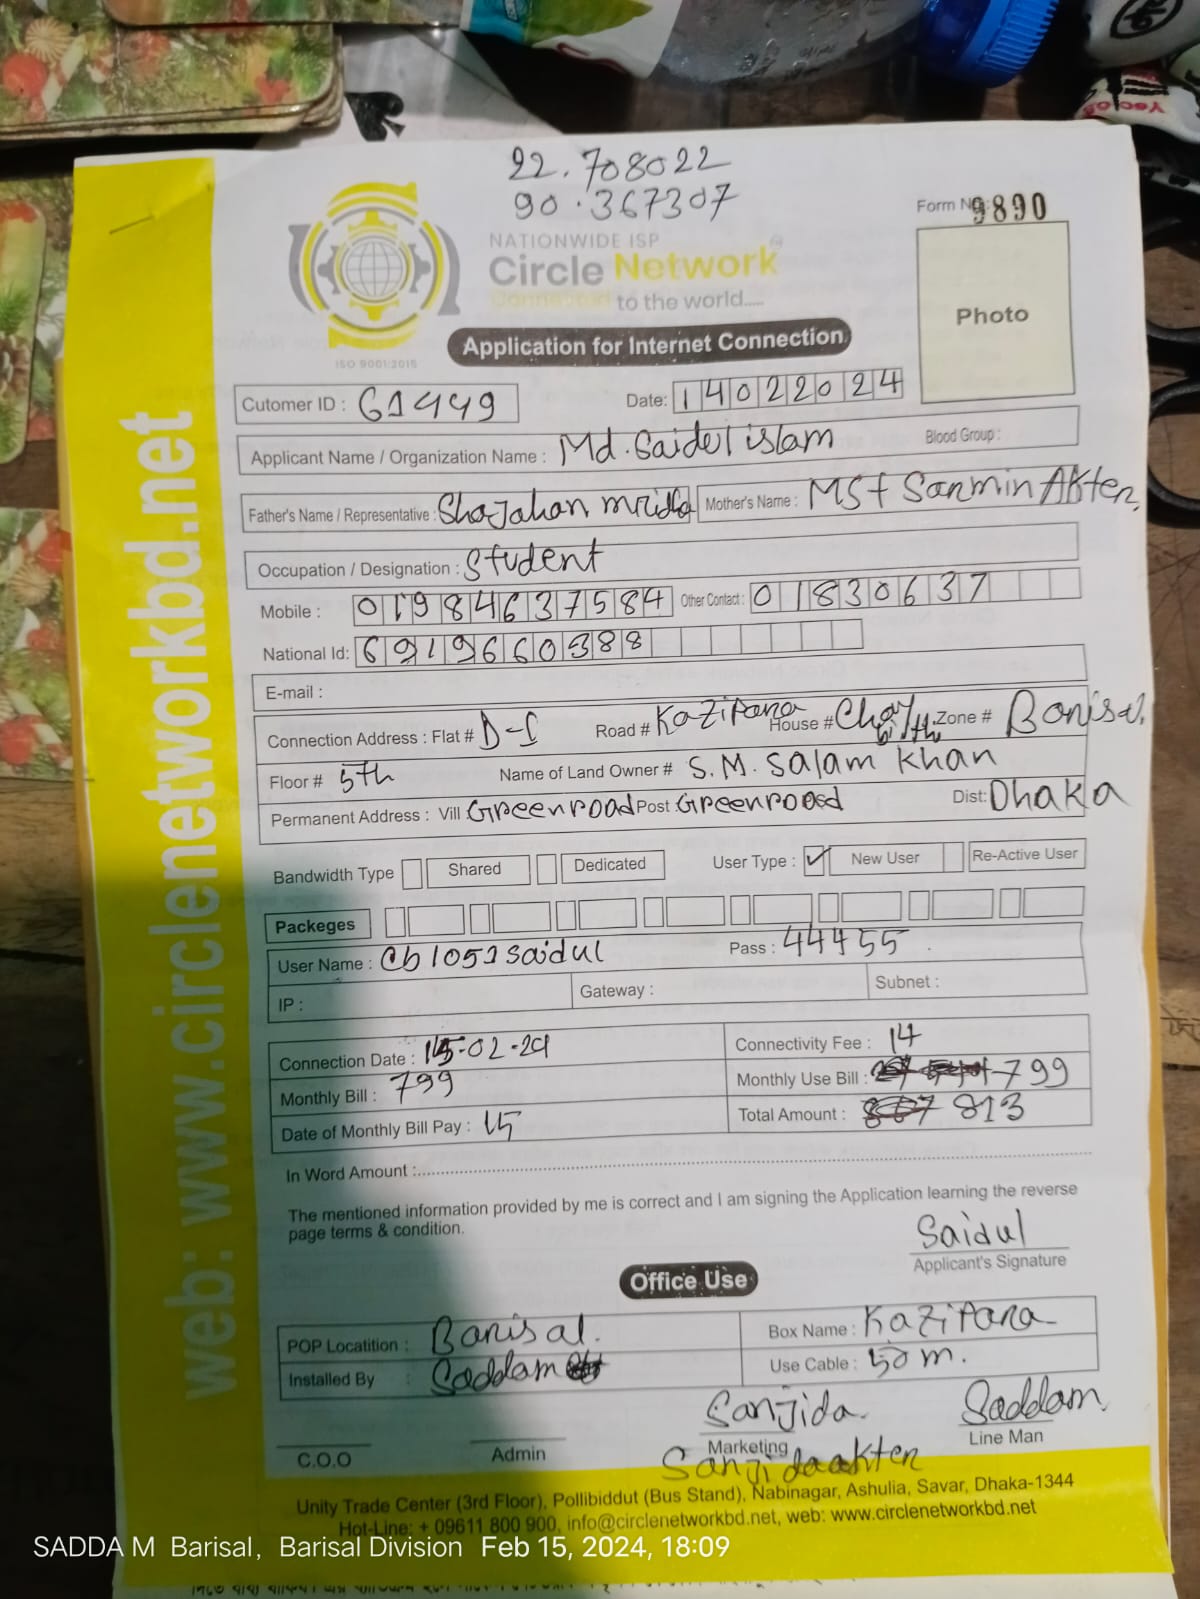 22.708022
90.367307
Form No: 9890
NATIONWIDE ISP
Circle Network
Connected to the world.....
ISO 9001:2015
Application for Internet Connection
Photo
Cutomer ID : 61449 Date: 14022024
Applicant Name / Organization Name : Md. Saidul islam Blood Group :
Father's Name / Representative : Shajahan mridha Mother's Name : MSt Sanmin Akter
Occupation / Designation : Student
Mobile : 01984637584 Other Contact : 01830637
National Id: 6919660388
E-mail :
Connection Address : Flat # D-5 Road # Kazipara House # Zone # Barisal
Floor # 5th Name of Land Owner # S.M. Salam Khan
Permanent Address : Vill Greenroad Post Greenroad Dist: Dhaka
Bandwidth Type Shared Dedicated User Type : ✓ New User Re-Active User
Packeges
User Name : Cb1051saidul Pass : 44455
IP : Gateway : Subnet :
Connection Date : 15-02-24 Connectivity Fee : 14
Monthly Bill : 799 Monthly Use Bill : 799
Date of Monthly Bill Pay : 15 Total Amount : 813
In Word Amount :
The mentioned information provided by me is correct and I am signing the Application learning the reverse
page terms & condition.
Saidul
Applicant's Signature
Office Use
POP Locatition : Barisal. Box Name : Kazipara
Installed By : Saddam Use Cable : 50 m.
Sanjida Saddam
C.O.O Admin Marketing Line Man
Sanjida akter
Unity Trade Center (3rd Floor), Pollibiddut (Bus Stand), Nabinagar, Ashulia, Savar, Dhaka-1344
Hot-Line: + 09611 800 900, info@circlenetworkbd.net, web: www.circlenetworkbd.net
web: www.circlenetworkbd.net
SADDA M Barisal, Barisal Division Feb 15, 2024, 18:09